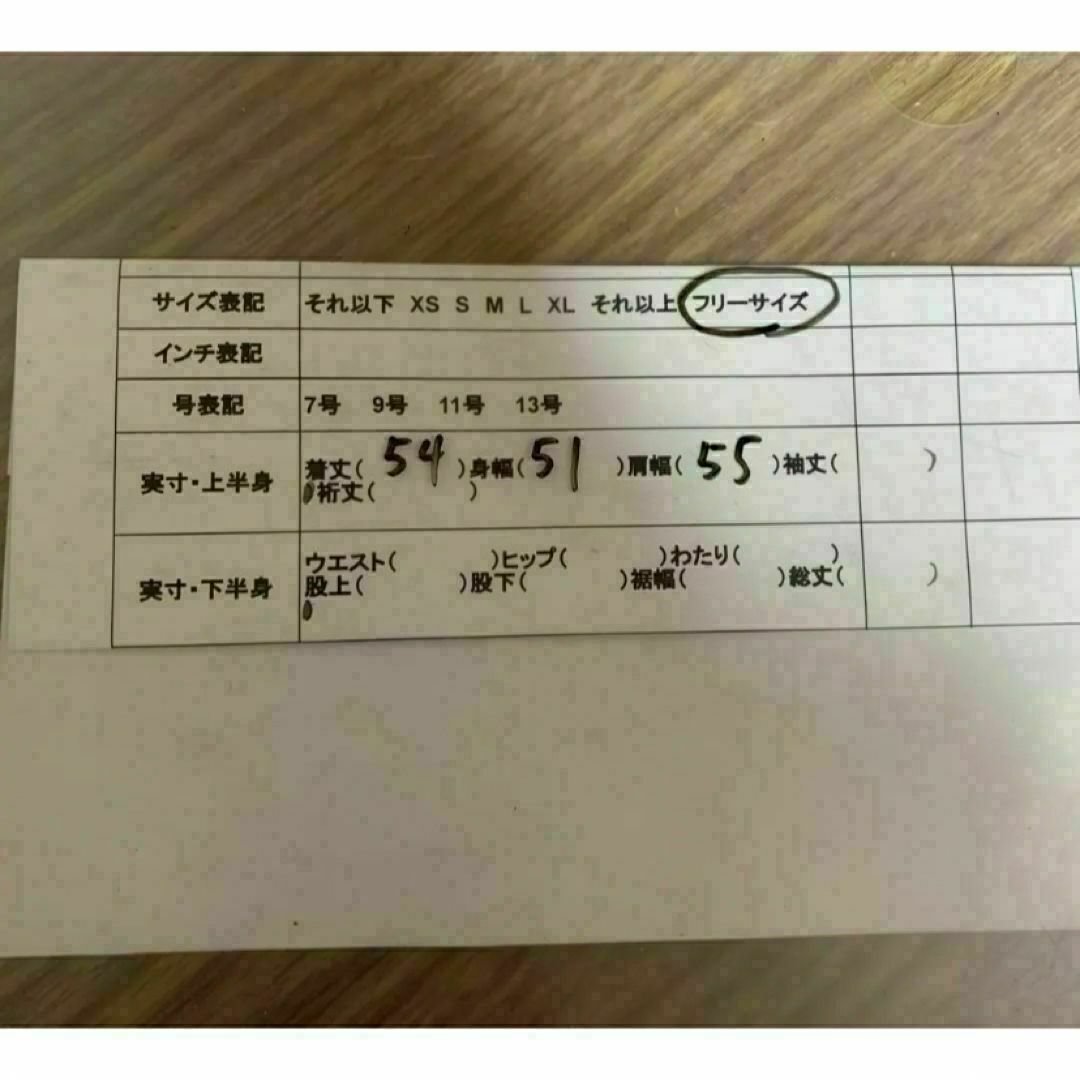 サイズ表記 それ以下 XS S M L XL それ以上 フリーサイズ
インチ表記
号表記 7号 9号 11号 13号
実寸・上半身 着丈( 54 )身幅( 51 )肩幅( 55 )袖丈( )
裄丈( )
実寸・下半身 ウエスト( )ヒップ( )わたり( )
股上( )股下( )裾幅( )総丈( )